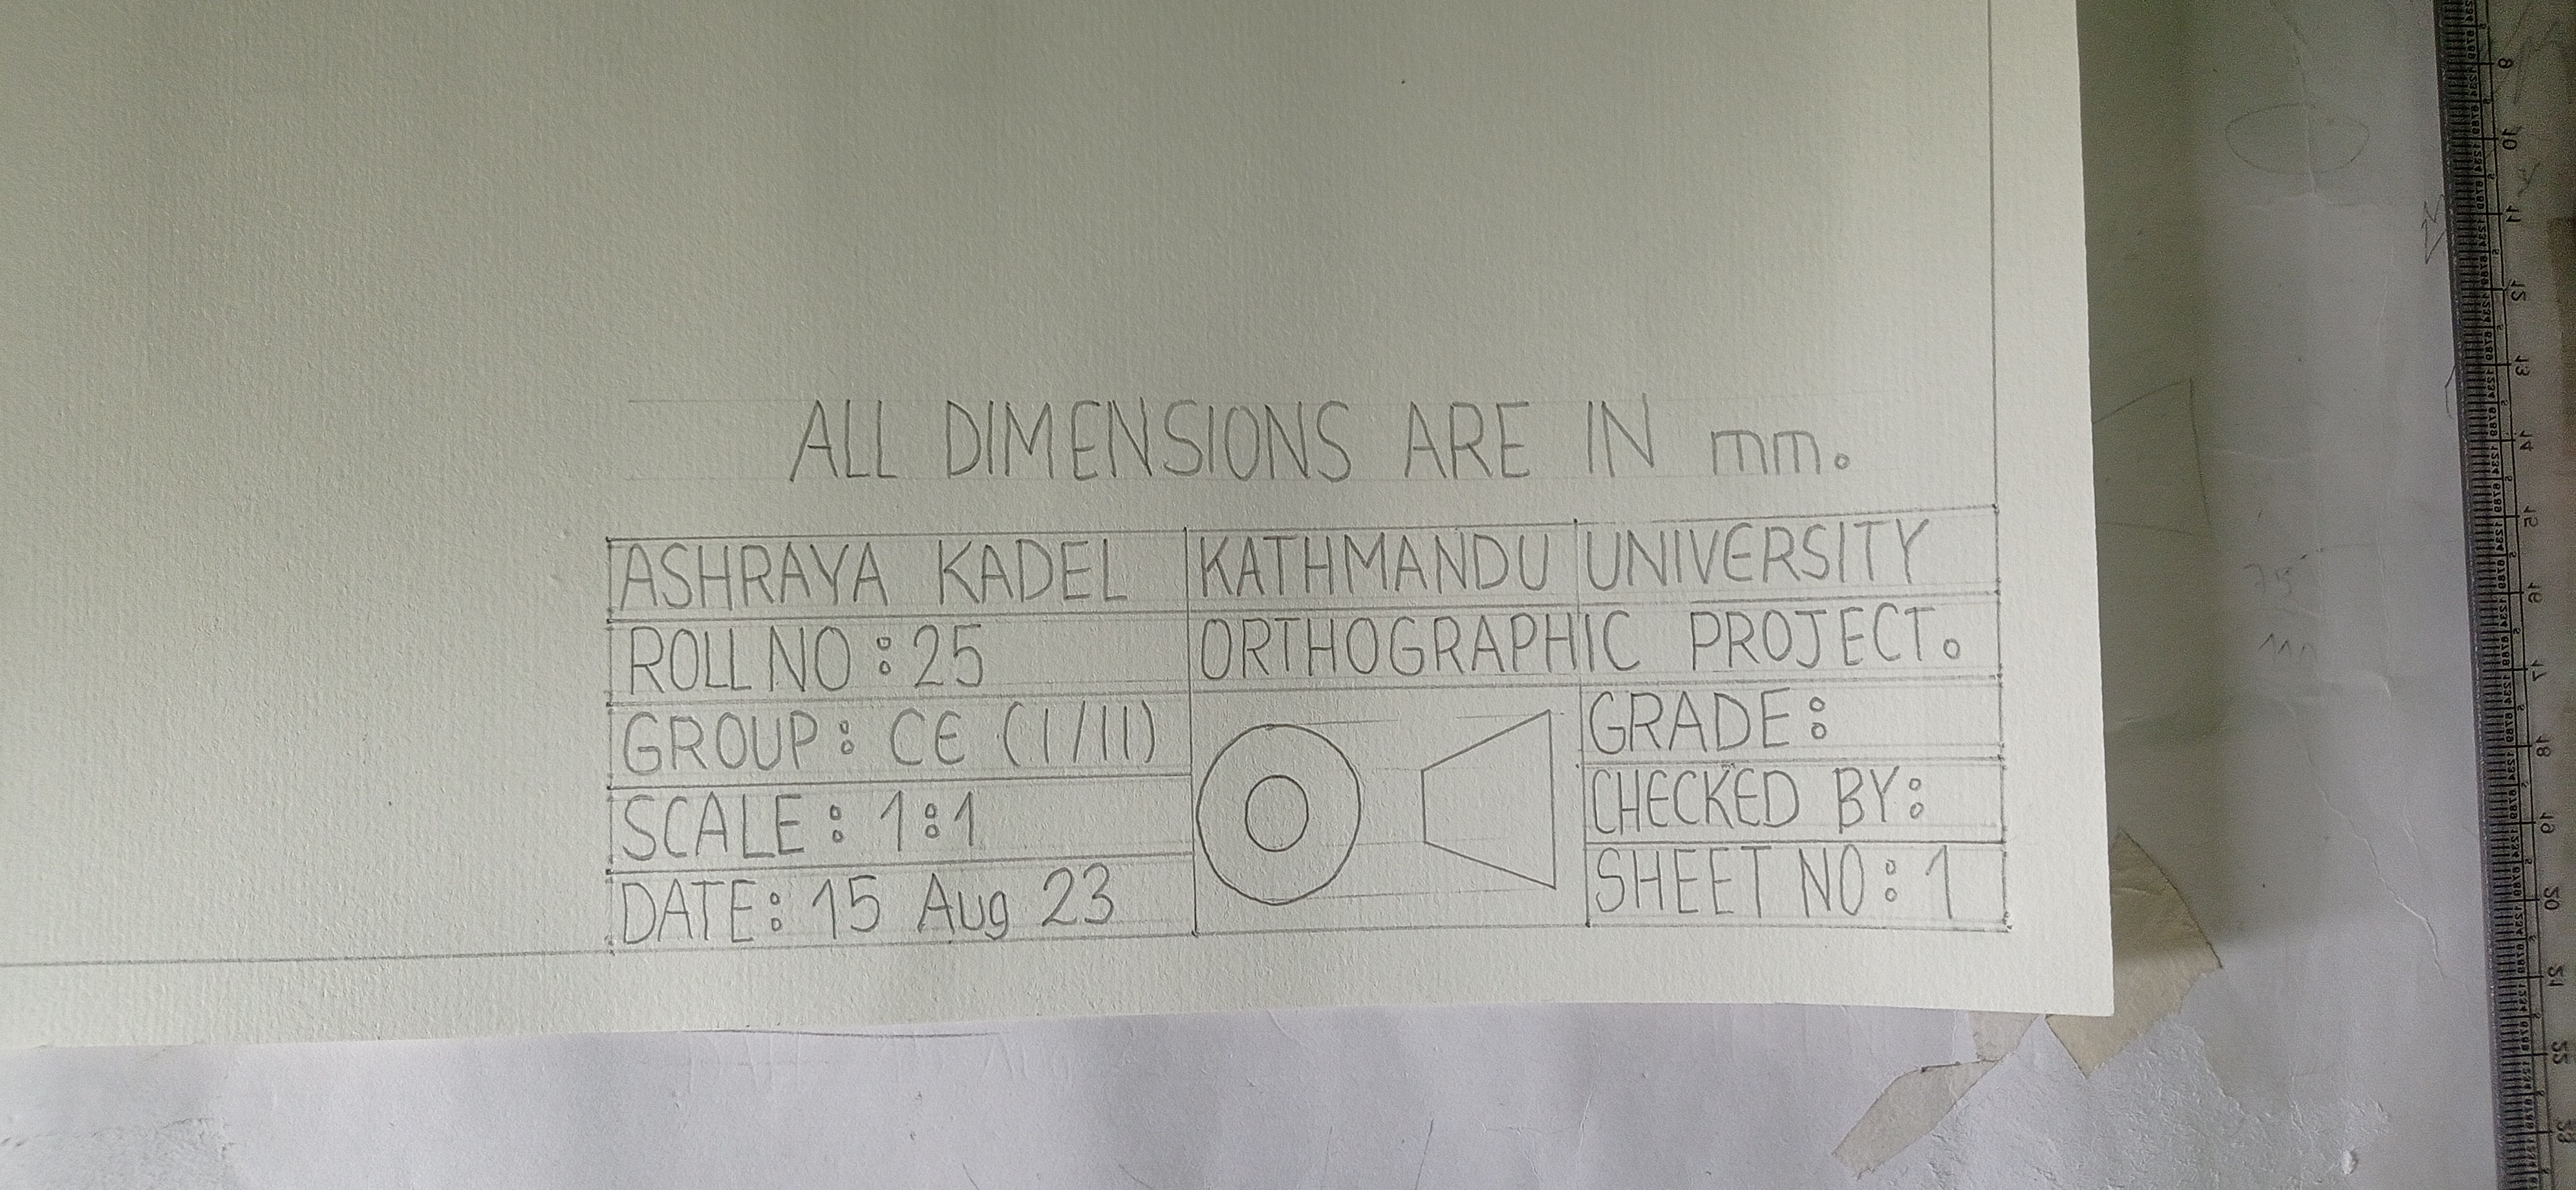 ALL DIMENSIONS ARE IN mm.
ASHRAYA KADEL
KATHMANDU UNIVERSITY
ROLL NO : 25
ORTHOGRAPHIC PROJECT.
GROUP: CE (I/II)
GRADE:
SCALE: 1:1
CHECKED BY:
DATE: 15 Aug 23
SHEET NO: 1
9
10
11
12
13
14
15
16
17
18
19
20
21
22
23